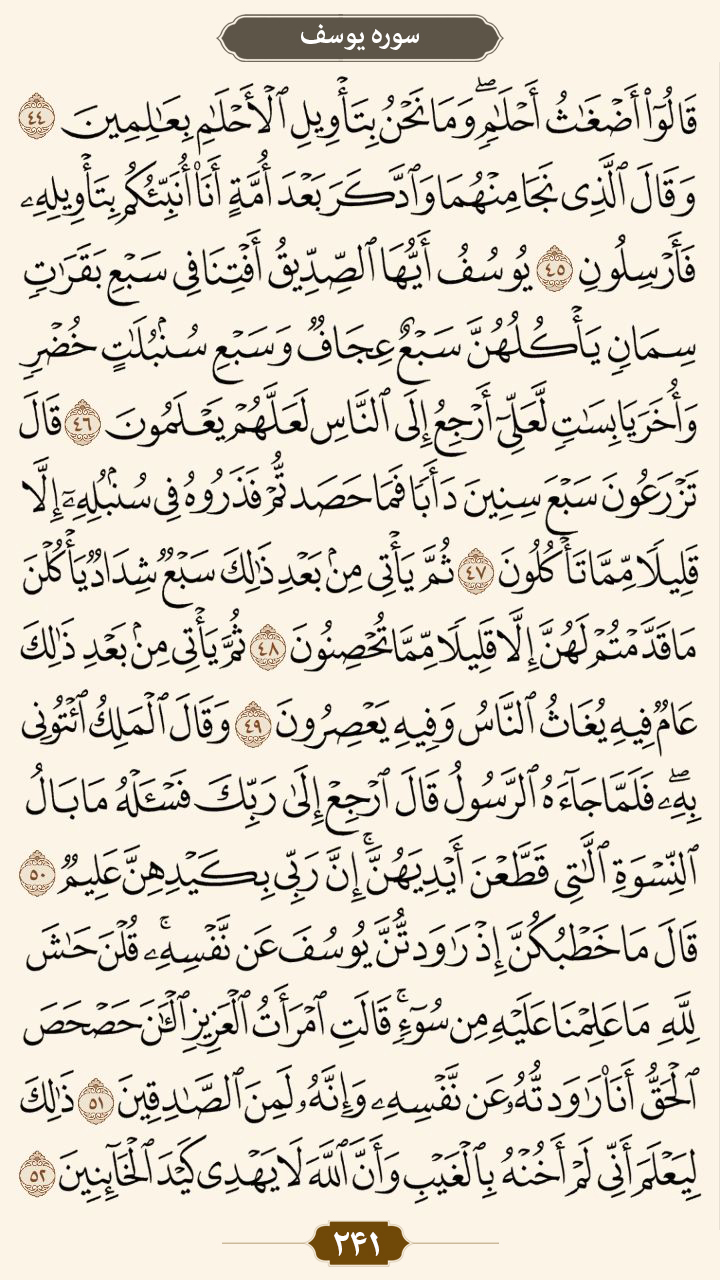 سوره یوسف
قَالُوٓا۟ أَضْغَٰثُ أَحْلَٰمٍۖ وَمَا نَحْنُ بِتَأْوِيلِ ٱلْأَحْلَٰمِ بِعَٰلِمِينَ ٤٤
وَقَالَ ٱلَّذِى نَجَا مِنْهُمَا وَٱدَّكَرَ بَعْدَ أُمَّةٍ أَنَا۠ أُنَبِّئُكُم بِتَأْوِيلِهِۦ
فَأَرْسِلُونِ ٤٥ يُوسُفُ أَيُّهَا ٱلصِّدِّيقُ أَفْتِنَا فِى سَبْعِ بَقَرَٰتٍ
سِمَانٍ يَأْكُلُهُنَّ سَبْعٌ عِجَافٌ وَسَبْعِ سُنۢبُلَٰتٍ خُضْرٍ
وَأُخَرَ يَابِسَٰتٍ لَّعَلِّىٓ أَرْجِعُ إِلَى ٱلنَّاسِ لَعَلَّهُمْ يَعْلَمُونَ ٤٦ قَالَ
تَزْرَعُونَ سَبْعَ سِنِينَ دَأَبًا فَمَا حَصَدتُّمْ فَذَرُوهُ فِى سُنۢبُلِهِۦٓ إِلَّا
قَلِيلًا مِّمَّا تَأْكُلُونَ ٤٧ ثُمَّ يَأْتِى مِنۢ بَعْدِ ذَٰلِكَ سَبْعٌ شِدَادٌ يَأْكُلْنَ
مَا قَدَّمْتُمْ لَهُنَّ إِلَّا قَلِيلًا مِّمَّا تُحْصِنُونَ ٤٨ ثُمَّ يَأْتِى مِنۢ بَعْدِ ذَٰلِكَ
عَامٌ فِيهِ يُغَاثُ ٱلنَّاسُ وَفِيهِ يَعْصِرُونَ ٤٩ وَقَالَ ٱلْمَلِكُ ٱئْتُونِى
بِهِۦۖ فَلَمَّا جَآءَهُ ٱلرَّسُولُ قَالَ ٱرْجِعْ إِلَىٰ رَبِّكَ فَسْـَٔلْهُ مَا بَالُ
ٱلنِّسْوَةِ ٱلَّٰتِى قَطَّعْنَ أَيْدِيَهُنَّۚ إِنَّ رَبِّى بِكَيْدِهِنَّ عَلِيمٌ ٥٠
قَالَ مَا خَطْبُكُنَّ إِذْ رَٰوَدتُّنَّ يُوسُفَ عَن نَّفْسِهِۦۚ قُلْنَ حَٰشَ
لِلَّهِ مَا عَلِمْنَا عَلَيْهِ مِن سُوٓءٍۚ قَالَتِ ٱمْرَأَتُ ٱلْعَزِيزِ ٱلْـَٰٔنَ حَصْحَصَ
ٱلْحَقُّ أَنَا۠ رَٰوَدتُّهُۥ عَن نَّفْسِهِۦ وَإِنَّهُۥ لَمِنَ ٱلصَّٰدِقِينَ ٥١ ذَٰلِكَ
لِيَعْلَمَ أَنِّى لَمْ أَخُنْهُ بِٱلْغَيْبِ وَأَنَّ ٱللَّهَ لَا يَهْدِى كَيْدَ ٱلْخَآئِنِينَ ٥٢
۲۴۱